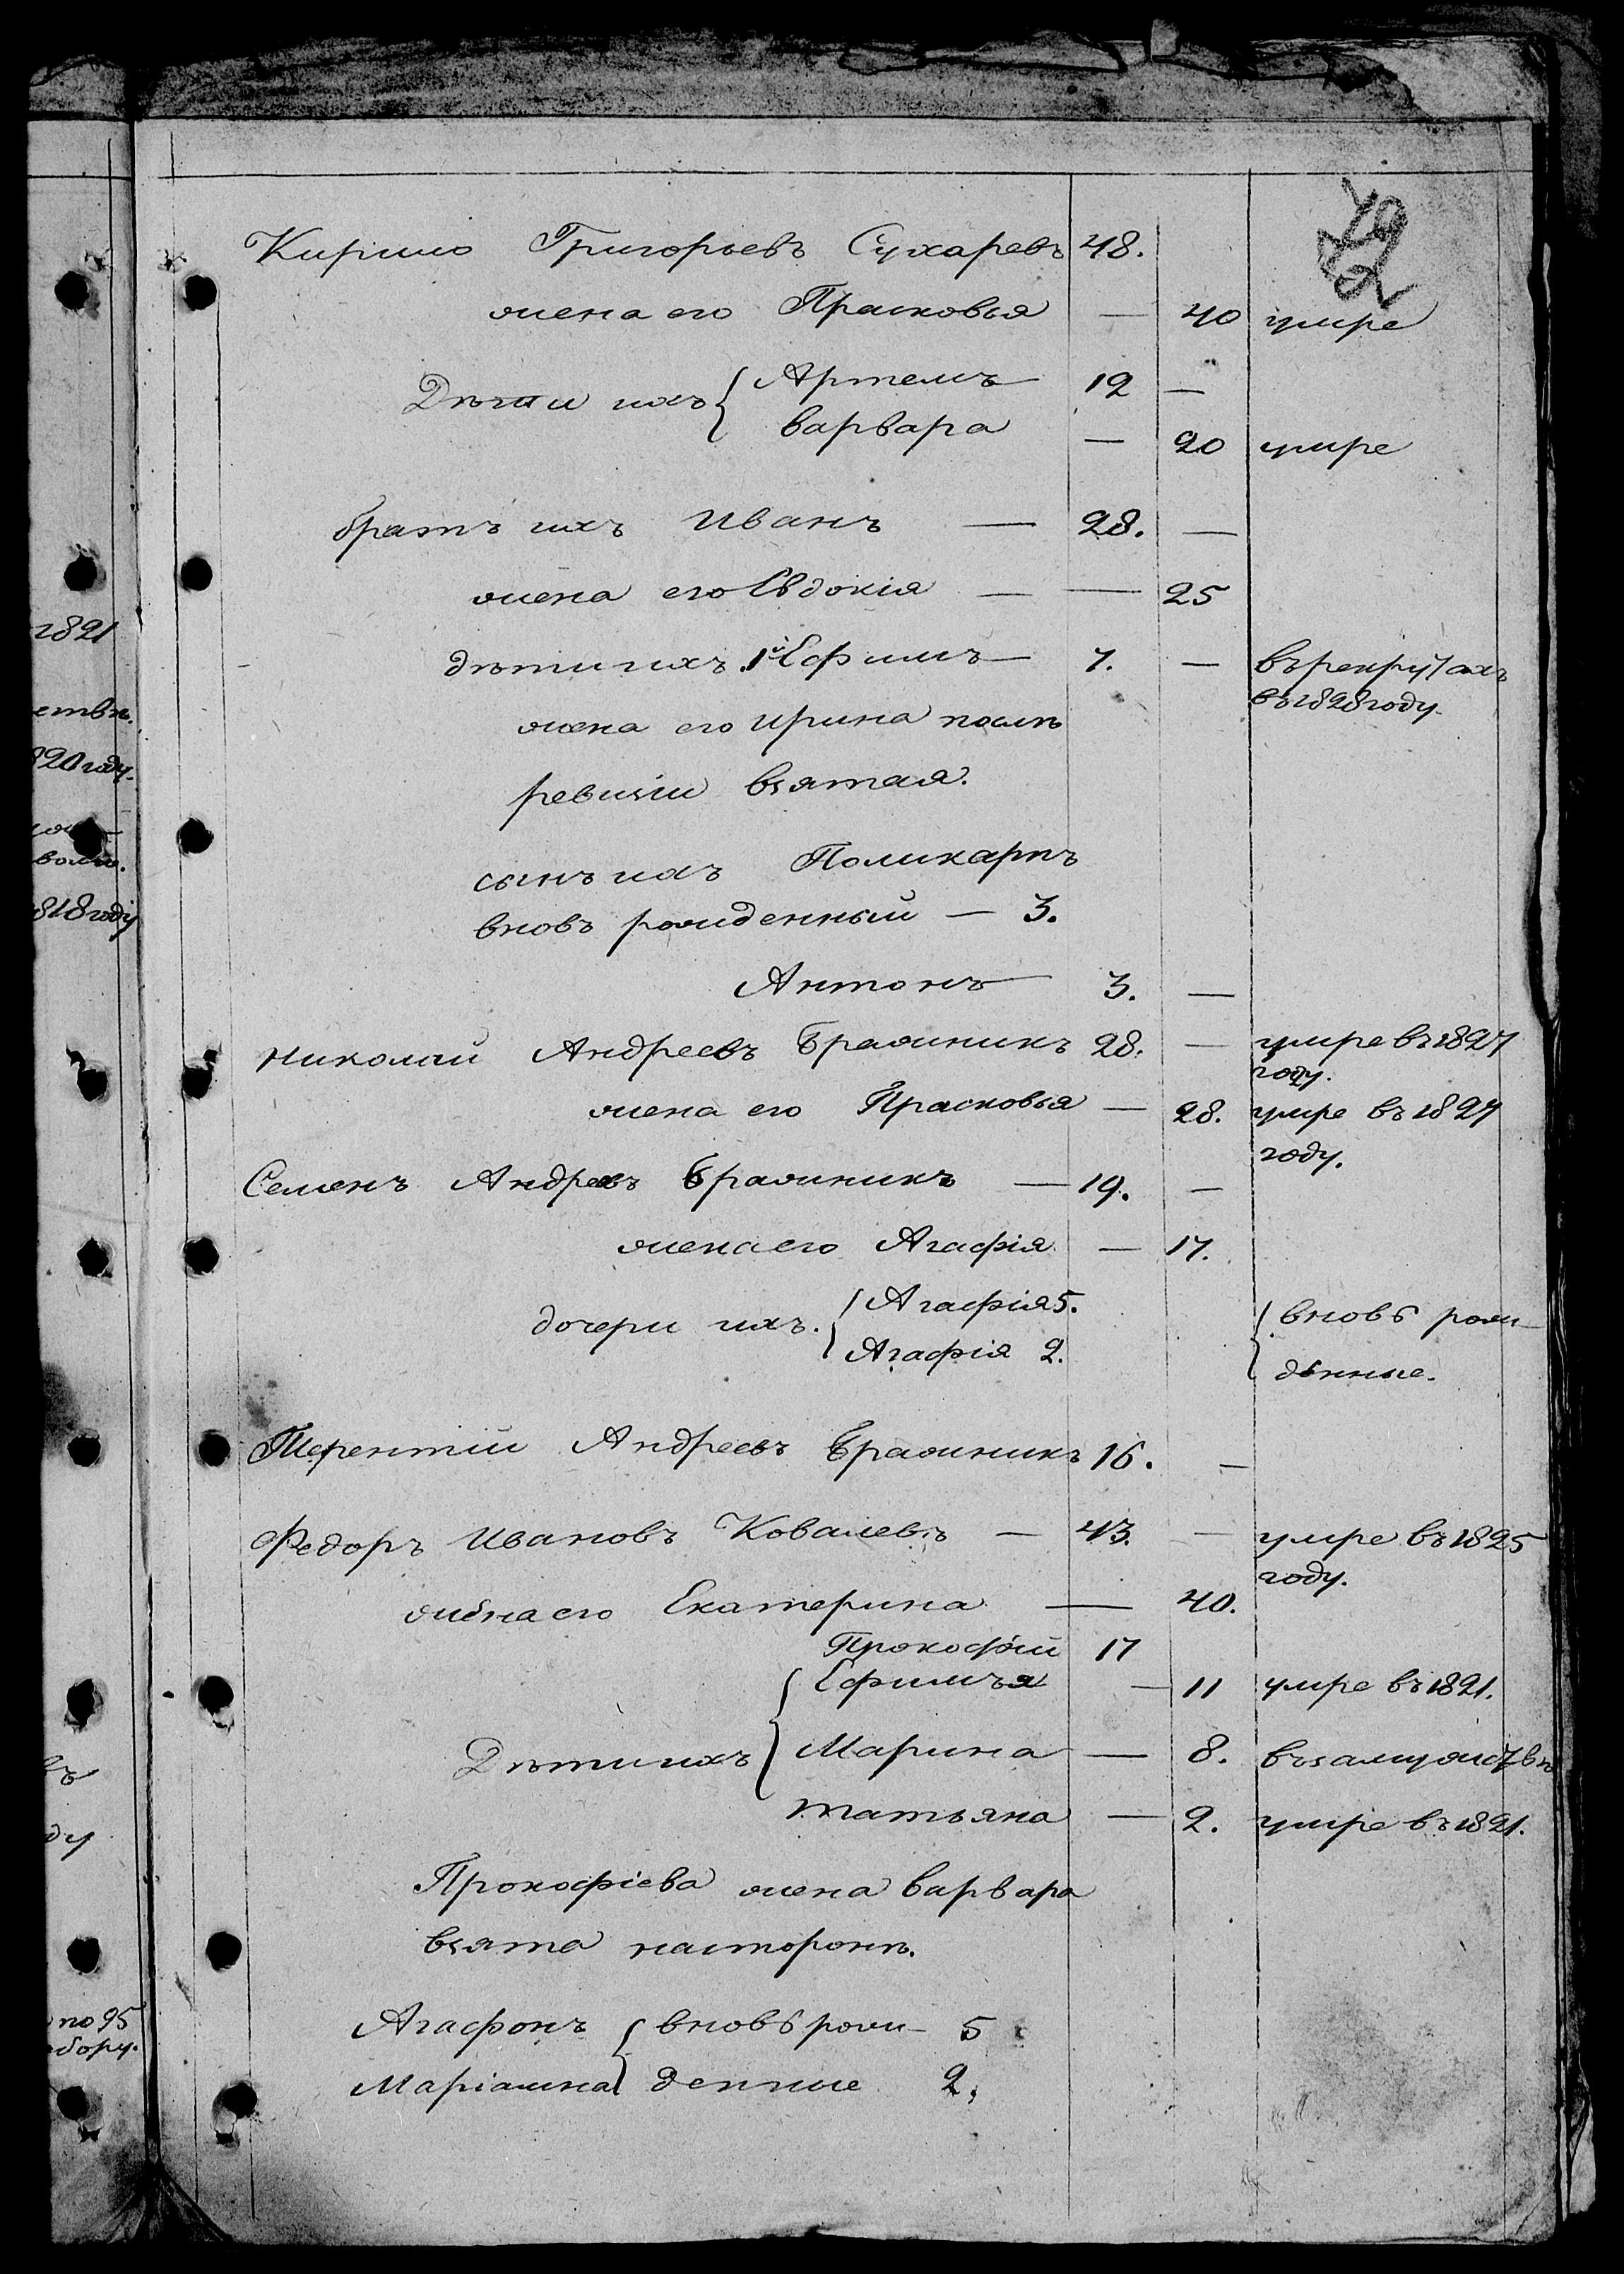 Кирило Григорьевъ Сухаревъ 48.
жена его Прасковья — 40 умре
Дѣти ихъ { Артемъ 12 —
варвара — 20 умре
братъ ихъ Иванъ — 28. —
жена его Евдокія — — 25
дѣти ихъ. 1й Ефимъ — 7. — въ рекрутахъ
въ 1828 году.
жена его ирина послѣ
ревизіи взятая.
сынъ ихъ Поликарпъ
вновь рожденный — 3.
Антонъ 3. —
николай Андреевъ Бражникъ 28. — умре въ 1827
году.
жена его Прасковья — 28. умре въ 1827
году.
Семенъ Андреевъ Бражникъ — 19. —
жена его Агафія — 17.
дочери ихъ. { Агафія 5. { вновь рож-
Агафія 2. денные.
Терентій Андреевъ Бражникъ 16. —
Федоръ Ивановъ Ковалевъ — 43. — умре въ 1825
году.
жена его Екатерина — 40.
Прокофій 17
Ефимъя — 11 умре въ 1821.
Дѣти ихъ { Марина — 8. въ замужествѣ
татьяна — 2. умре въ 1821.
Прокофіева жена варвара
взята насторонѣ.
Агафонъ { вновь рож- 5
Маріамна денные 2.
1821
ествѣ.
820 году.
818 году
въ
ду
по 95
бору.